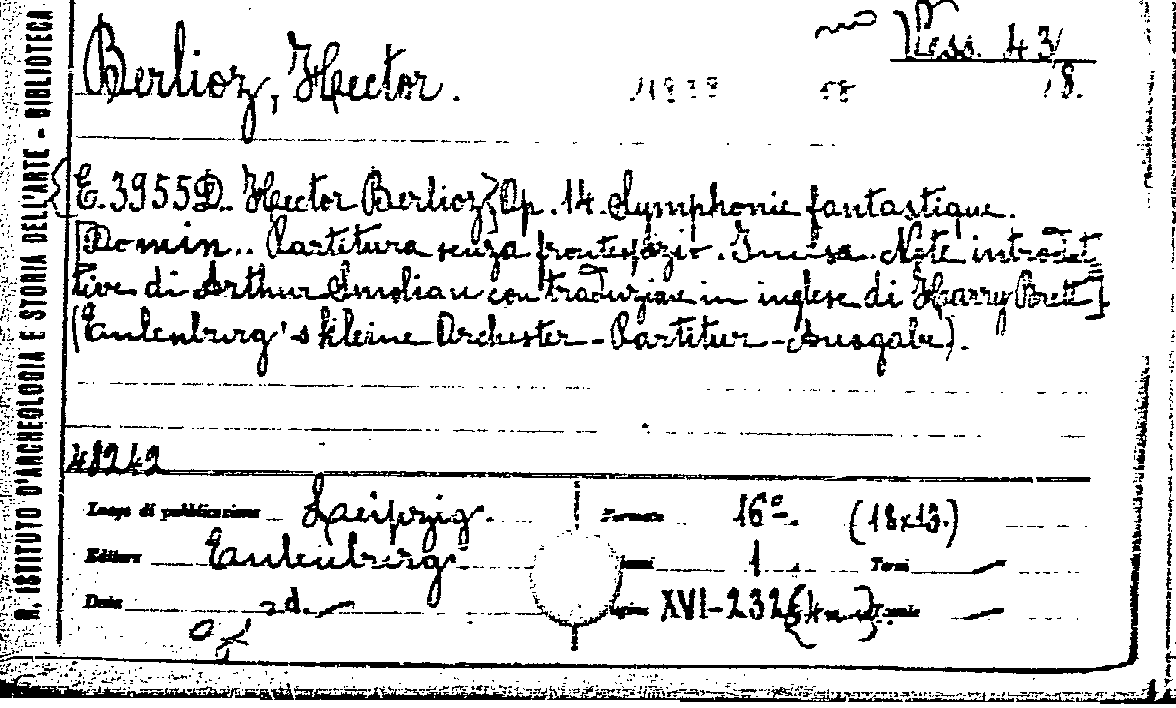 R. ISTITUTO D'ARCHEOLOGIA E STORIA DELL'ARTE - BIBLIOTECA
Vess. 43/
18.
Berlioz, Hector.
{E. 3955 D. Hector Berlioz} Op. 14. Symphonie fantastique.
[Domin.. Partitura senza frontespizio. In Note introdut
tive di Arthur Smolian con traduzione in inglese di Harry Brett]
(Eulenburg's kleine Orchester-Partitur-Ausgabe).
48242
Luogo di pubblicazione Leipzig.
Formato 16º. (18x13.)
Editore Eulenburg.
1. Tomi
Data s.d.
Pagine XVI-232